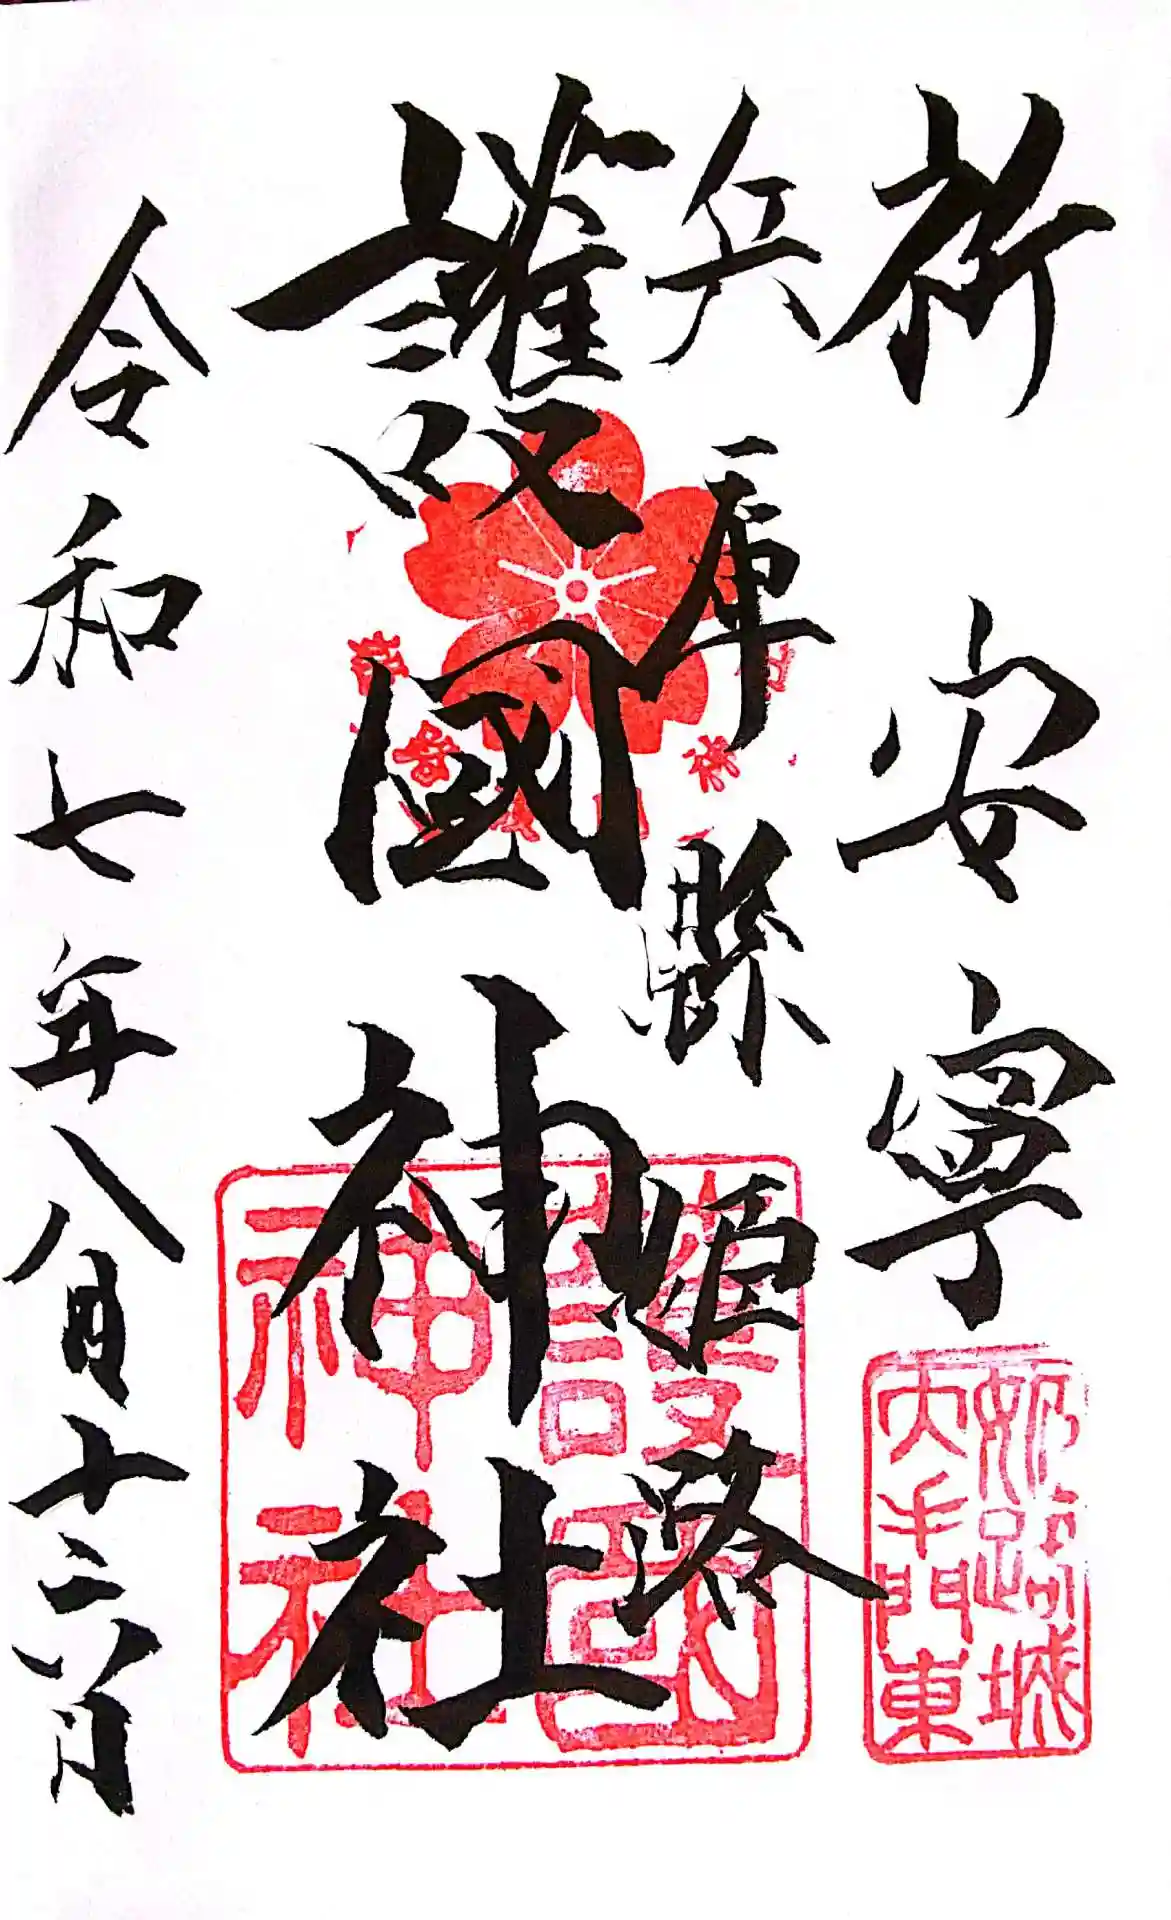 祈 安寧
姫路城
大手門東
兵庫縣 姫路
護國神社
護國
神社
令和七年八月十日